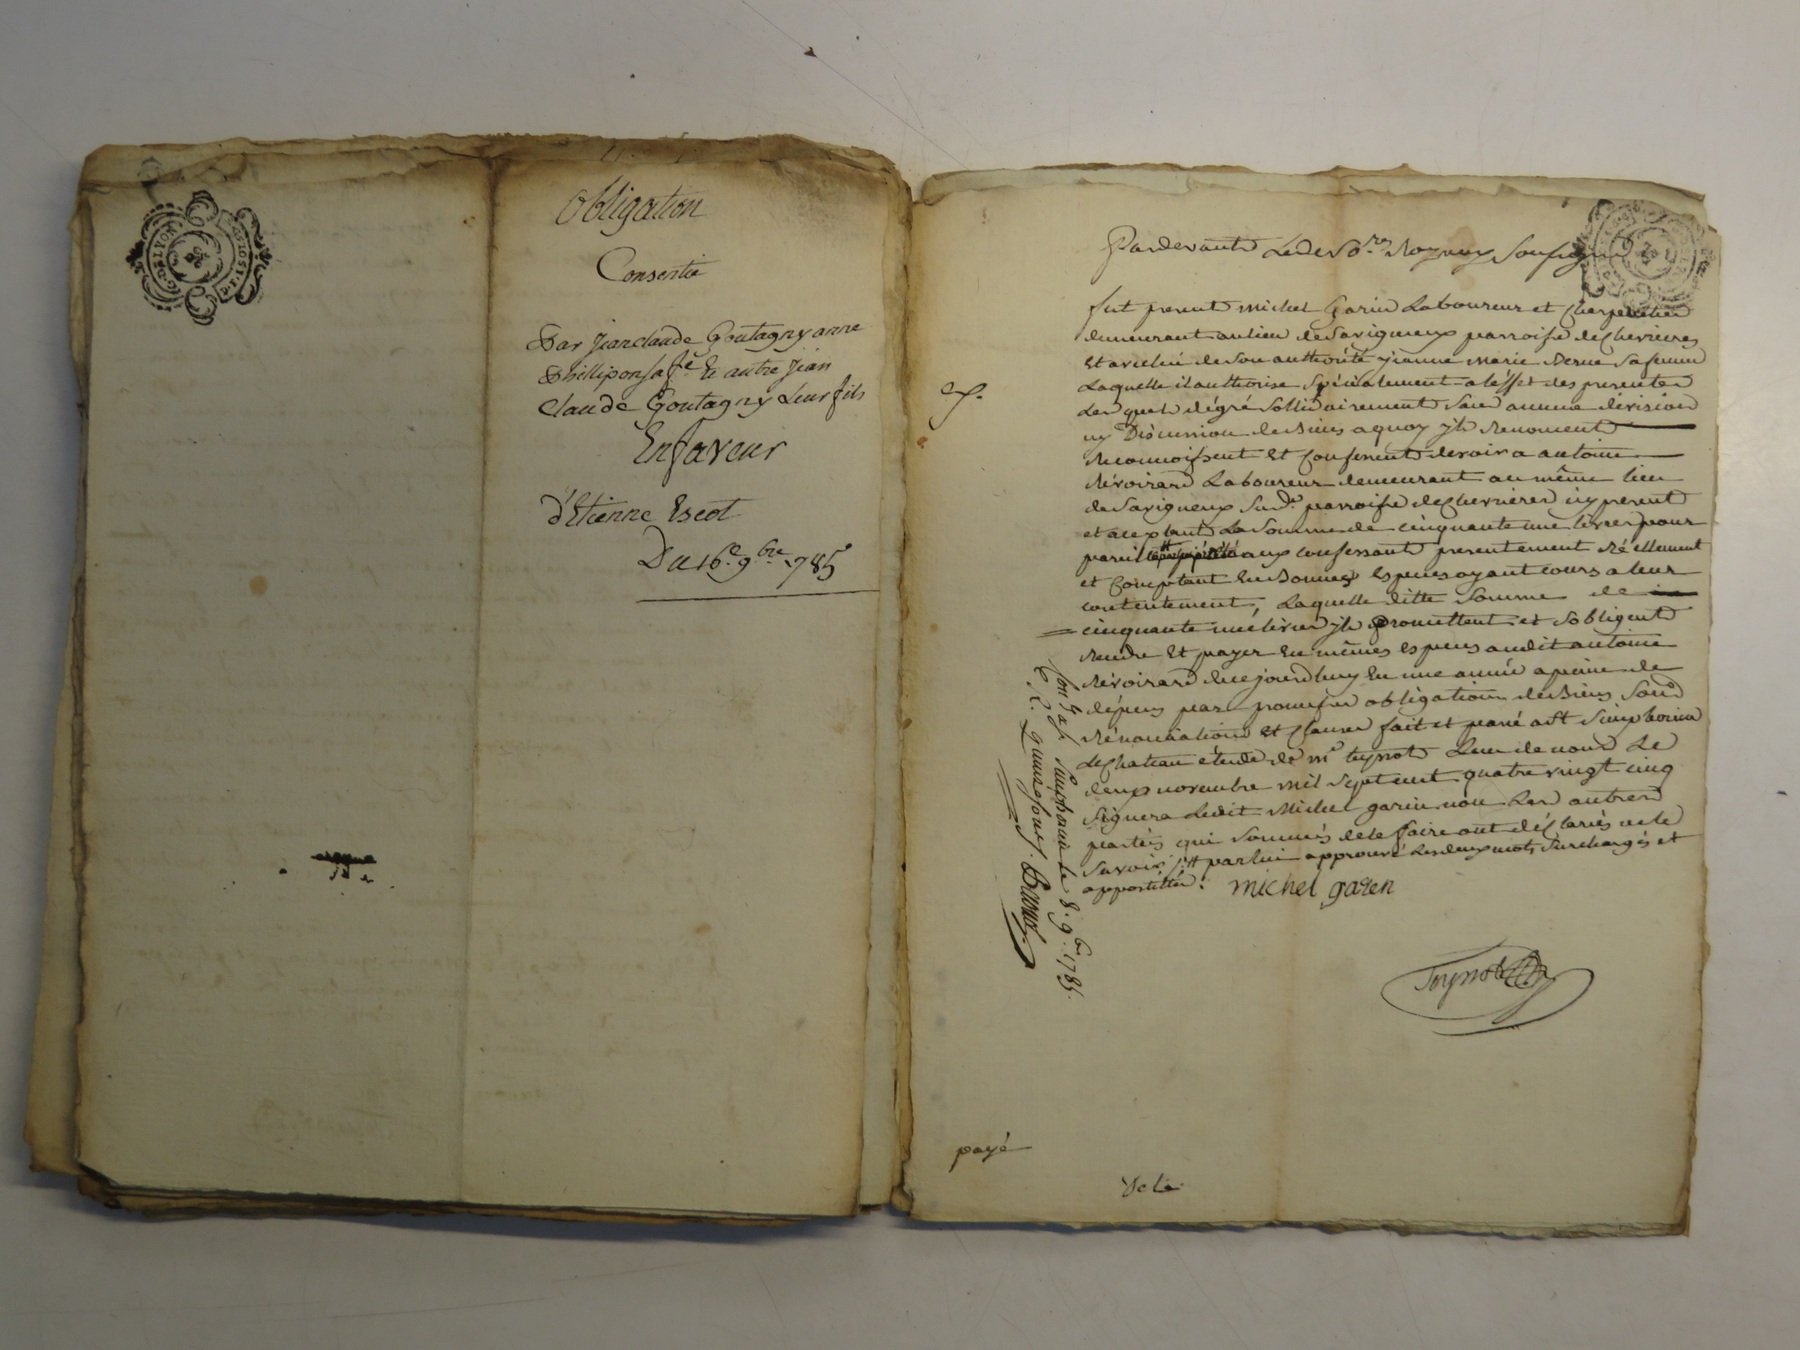 G. DE LYON
Obligation
Consentie
Par jean claude Goutagny anne
Phillipon sa fe. & autre jean
Claude Goutagny Leur fils
En faveur
d'Etienne Escot
Du 16e. 9bre. 785
Pardevant Le No.re Royaux Soussigné
fut present michel Garin Laboureur et Charpentier
demeurant au lieu de Savigneux parroisse de Chevrieres
Et avec lui de son authorité jeanne marie sa femme
Laquelle il authorise Spécialement a leffet des presentes
Lesquels dégré Sollidairement Sans aucune division
ny Discussion de Biens a quoy ils Renoncent
Reconnoissent Et Confessent devoir a antoine
Révoirard Laboureur demeurant au même lieu
de Savigneux Sud. parroisse de Chevrieres icy present
et acceptant La Somme de cinquante une livres pour
pareille aux confessants presentement Réellement
et Comptant En Bonnes Especes ayant cours a leur
contentement, Laquelle ditte Somme de
cinquante une livres ils promettent et Sobligent
Rendre Et payer En mêmes especes audit antoine
Révoirard dicy En une année a peine de
dépens par promesses obligation de Biens Soumis
Rénonciations Et Clauses fait et passé a St Simphorien
Le Chateau étude de me teynot Lun de nous Le
deux novembre mil Sept cent quatre vingt cinq
Signera Ledit Michel garin non Les autres
parties qui Sommés de le faire ont déclarés ne le
Savoir, par lui approuvé Les deux mots Surchargés et
appostillés. michel garen
Teynot
Con.lé a St Simphorien le 8. 9b. 1785.
R. quinze sous. 
payé